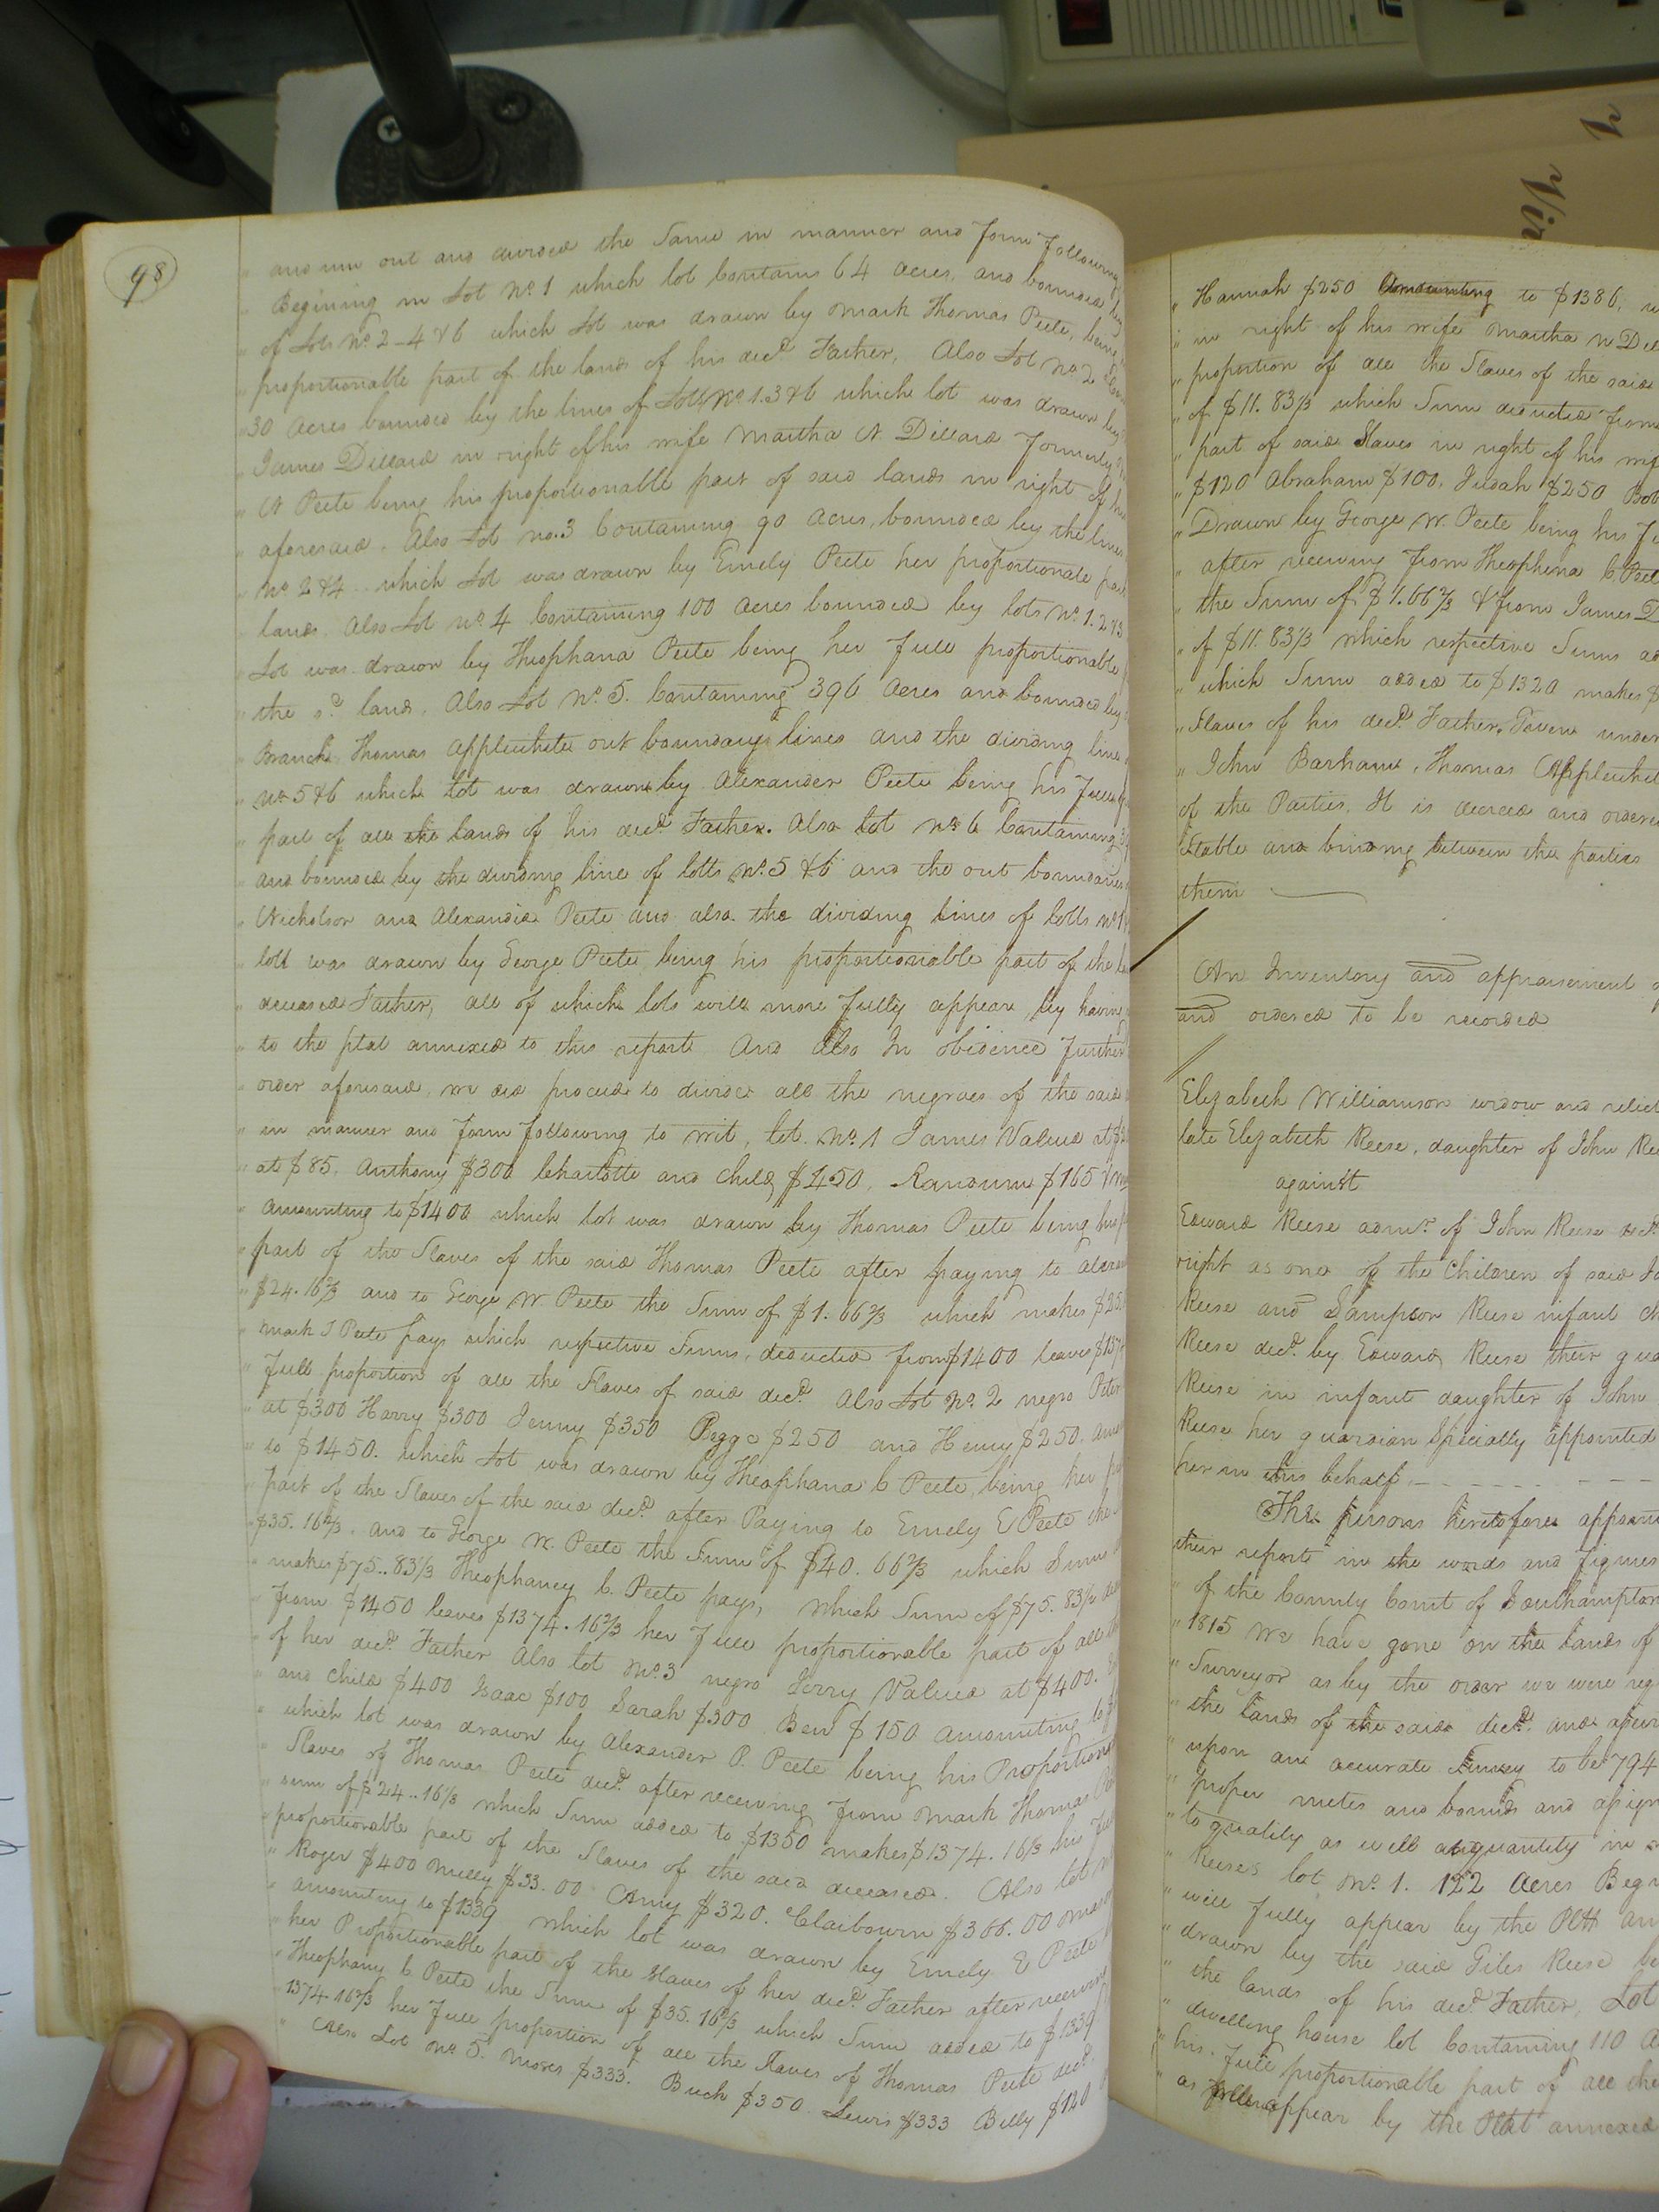 98
" and run out and divided the Same in manner and form following
" Begining in Lot No. 1 which lot Contains 64 acres, and bounded by
" of Lots No. 2-4 & 6 which Lot was drawn by Mark Thomas Peete, being
" proportionable part of the land of his decd. Father, Also Lot No. 2
" 30 Acres bounded by the lines of Lotts No. 1. 3 & 6 which lot was drawn by
" James Dillard in right of his wife Martha N Dillard formerly
" N Peete being his proportionable part of said lands in right of his
" aforesaid. Also Lot No. 3 Containing 90 Acres, bounded by the lines
" No. 2 & 4 which Lot was drawn by Emely Peete her proportionate part
" lands. Also Lot No. 4 Containing 100 Acres bounded by lots No. 1. 2 & 3
" Lot was drawn by Theophana Peete being her full proportionable
" the sd. land. Also Lot No. 5. Containing 396 Acres and bounded by
" Branch Thomas Applewhites out boundary lines and the dividing line
" No. 5 & 6 which lot was drawn by Alexander Peete being his full
" part of all the lands of his decd. Father. Also lot No. 6 Containing
" and bounded by the dividing line of lotts No. 5 & 6 and the out boundaries
" Nicholson and Alexander Peete and also the dividing lines of lotts No. 1
" lott was drawn by George Peete being his proportionable part of the
" deceased Father, all of which lots will more fully appear by having
" to the plat annexed to this report. And Also In obidence further
" order aforesaid, we did procede to divide all the negroes of the said
" in manner and form following to wit, lot. No. 1 James Valued at
" at $85. Anthony $300 Charlotte and Child $450. Randum $165
" amounting to $1400 which lot was drawn by Thomas Peete being his
" part of the Slaves of the said Thomas Peete after paying to
" $24.16 2/3 and to George W. Peete the Sum of $1.66 2/3 which makes
" Mark T Peete pays which respective Sums, deducted from $1400 leaves
" full proportion of all the Slaves of said decd. Also Lot No. 2 negro Peter
" at $300 Harry $300 Jenny $350 Peggo $250 and Henry $250.
" to $1450. which Lot was drawn by Theophana C Peete, being her
" part of the Slaves of the said decd. after Paying to Emely E Peete the
" $35.16 2/3. and to George W. Peete the Sum of $40.66 2/3 which Sum
" makes $75..83 1/3 Theophaney C. Peete pays, which Sum of $75.83 1/3
" from $1450 leaves $1374.16 2/3 her full proportionable part of all
" of her decd. Father Also lot No. 3 negro Jerry Valued at $400.
" and Child $400 Isaac $100 Sarah $300. Ben $150 amounting to
" which lot was drawn by Alexander P. Peete being his Proportiona
" Slaves of Thomas Peete decd. after receiving from Mark Thomas
" sum of $24..16 1/3 which Sum added to $1350 makes $1374.16 1/3 his
" proportionable part of the Slaves of the said deceased. Also lot
" Roger $400 Milly $33.00 Amy $320. Claibourn $366.00
" amounting to $1339 which lot was drawn by Emely E Peete
" her Proportionable part of the Slaves of her decd. Father after receiving
" Theophany C Peete the Sum of $35.16 2/3 which Sum added to $1339
" 1374.16 2/3 her full proportion of all the Slaves of Thomas Peete decd.
" Also Lot No. 5. Moses $333. Buck $350. Lewis $333 Billy $120
" Hannah $250 Amounting to $1386,
" in right of his wife Martha N
" proportion of all the Slaves of the said
" of $11.83 1/3 which Sum deducted from
" part of said Slaves in right of his
" $120 Abraham $100. Judah $250 Bob
" Drawn by George W. Peete being his
" after receiving from Theophina C Peete
" the Sum of $1.66 2/3 & from James
" of $11.83 1/3 which respective Sums
" which Sum added to $1320 makes $
" Slaves of his decd. Father. Given under
" John Barham, Thomas Applewhite
of the Parties. It is decreed and ordered
Stable and binding between the parties
them
An Inventory and appraisement
and ordered to be recorded
Elizabeth Williamson widow and relict
late Elizabeth Reese, daughter of John
against
Edward Reese admr. of John Reese decd.
right as one of the Children of said
Reese and Sampson Reese infant
Reese decd. by Edward Reese their
Reese in infant daughter of John
Reese her guardian Specially appointed
her in this behalf.
The persons heretofore
their report in the words and figures
" of the County Court of Southampton
" 1815 We have gone on the lands of
" Surveyor as by the order we were
" the lands of the said decd. and
" upon an accurate Survey to be 794
" proper metes and bounds and
" to quality as well as quantity in
" Reeses lot No. 1. 122 Acres
" will fully appear by the Platt
" drawn by the said Giles Reese
" the lands of his decd. Father, Lot
" dwelling house lot Containing 110
" his full proportionable part of all the
" as appear by the Platt annexed
Vir